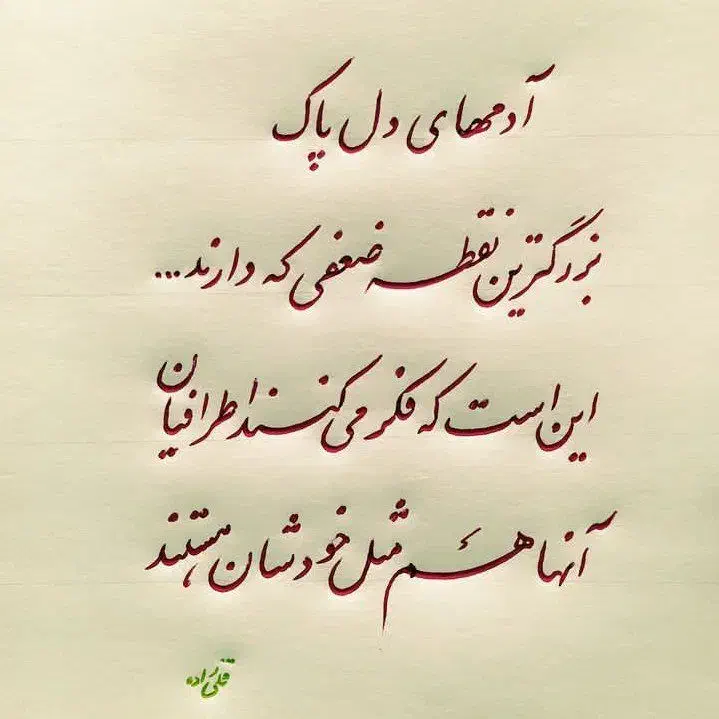 آدمهای دل پاک
بزرگترین نقطه ضعفی که دارند...
این است که فکر می کنند اطرافیان
آنها هم مثل خودشان هستند
قلی زاده